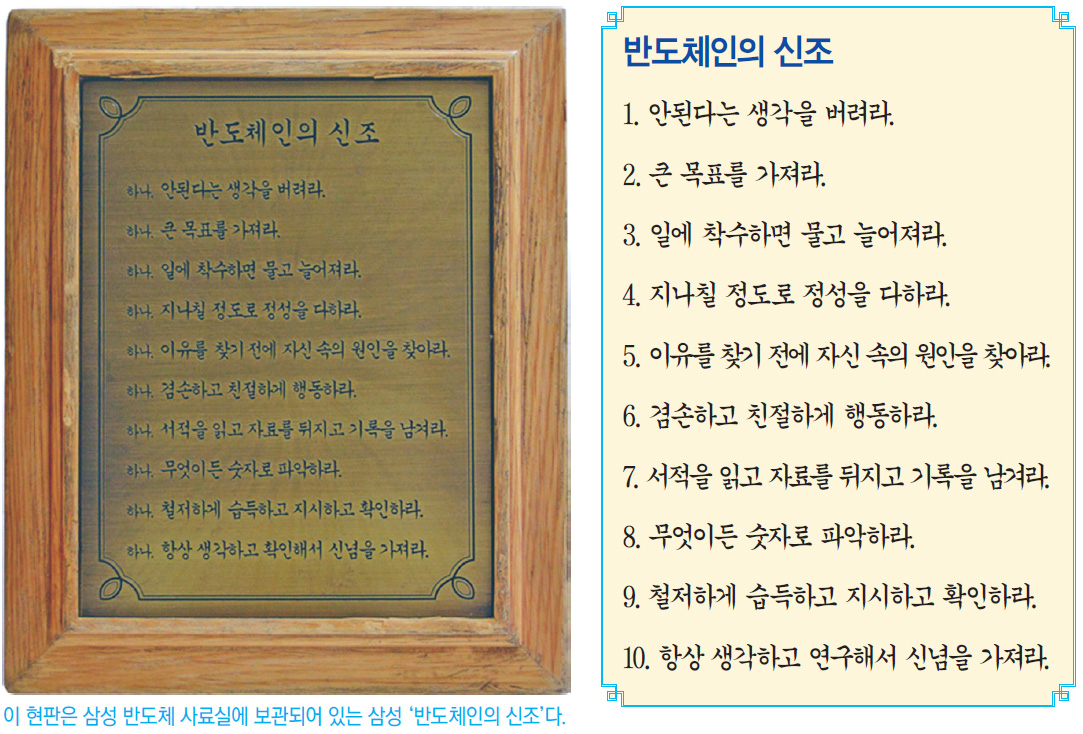 반도체인의 신조
하나. 안된다는 생각을 버려라.
하나. 큰 목표를 가져라.
하나. 일에 착수하면 물고 늘어져라.
하나. 지나칠 정도로 정성을 다하라.
하나. 이유를 찾기 전에 자신 속의 원인을 찾아라.
하나. 겸손하고 친절하게 행동하라.
하나. 서적을 읽고 자료를 뒤지고 기록을 남겨라.
하나. 무엇이든 숫자로 파악하라.
하나. 철저하게 습득하고 지시하고 확인하라.
하나. 항상 생각하고 확인해서 신념을 가져라.
이 현판은 삼성 반도체 사료실에 보관되어 있는 삼성 ‘반도체인의 신조’다.
반도체인의 신조
1. 안된다는 생각을 버려라.
2. 큰 목표를 가져라.
3. 일에 착수하면 물고 늘어져라.
4. 지나칠 정도로 정성을 다하라.
5. 이유를 찾기 전에 자신 속의 원인을 찾아라.
6. 겸손하고 친절하게 행동하라.
7. 서적을 읽고 자료를 뒤지고 기록을 남겨라.
8. 무엇이든 숫자로 파악하라.
9. 철저하게 습득하고 지시하고 확인하라.
10. 항상 생각하고 연구해서 신념을 가져라.